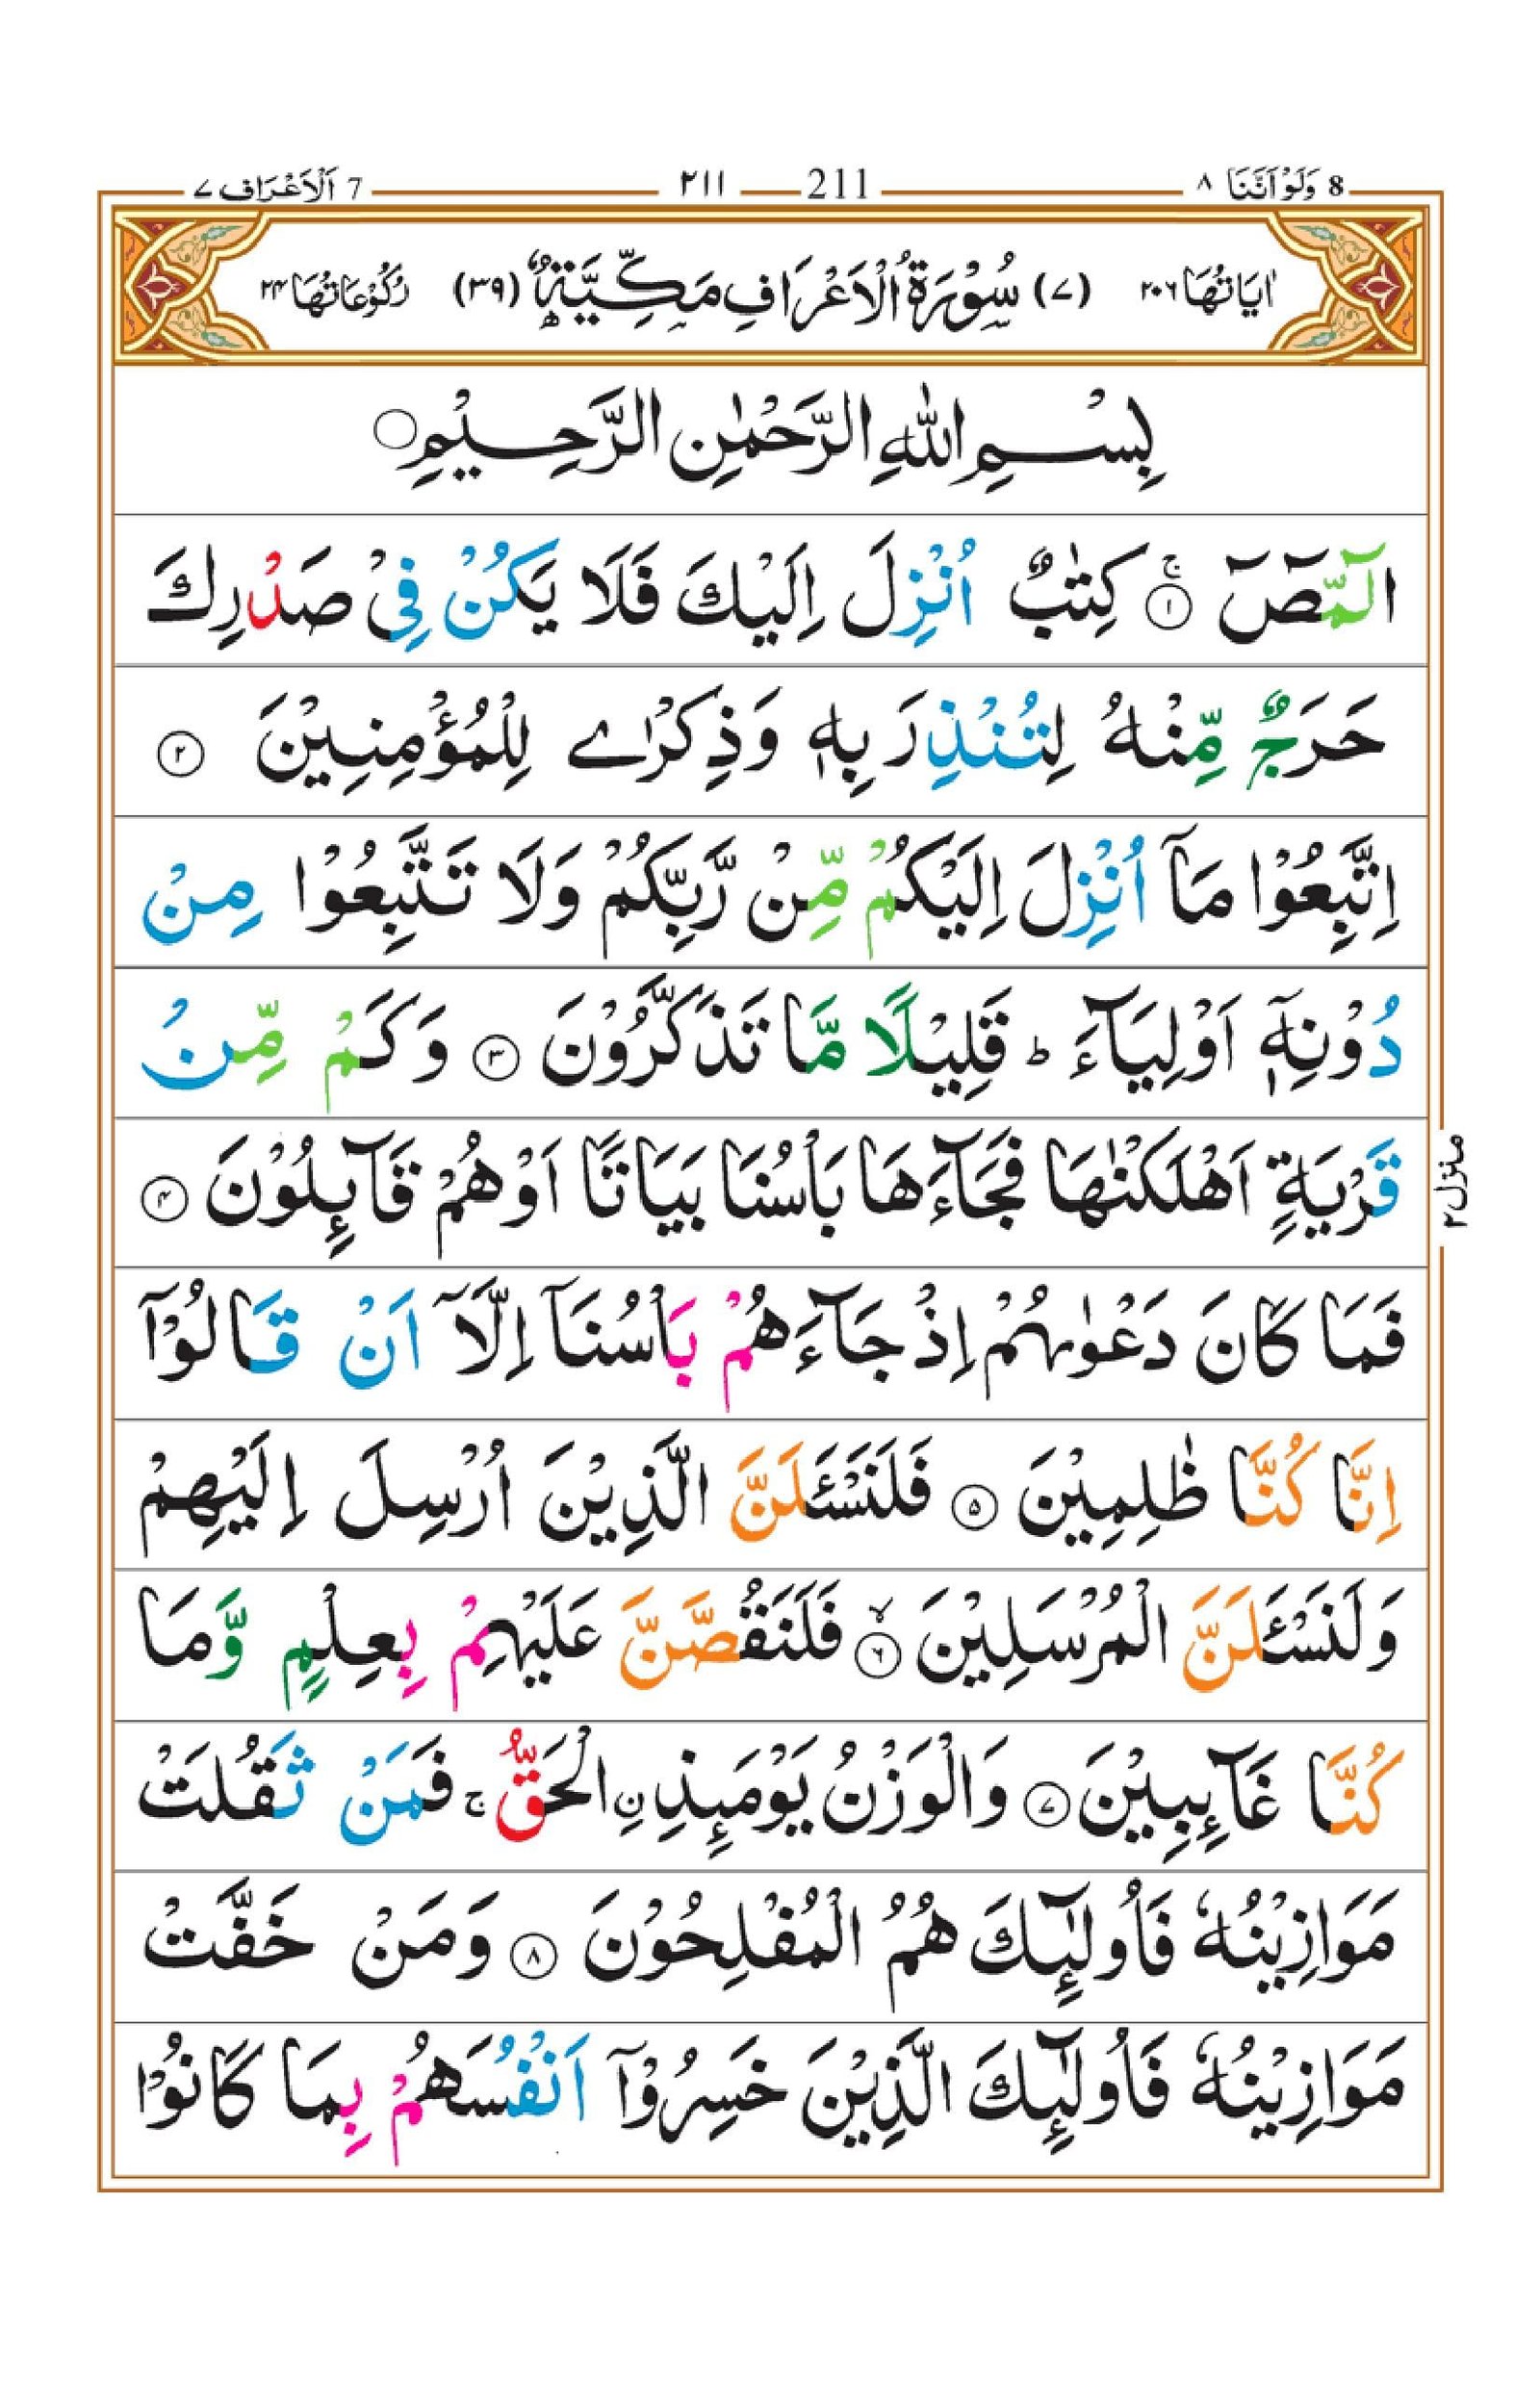 8 وَلَوْ اَنَّنَا ٨ 211 ٢١١ 7 اَلْاَعْرَاف ٧
اٰيَاتُهَا ٢٠٦ (٧) سُوْرَةُ الْاَعْرَافِ مَكِّيَّةٌ (٣٩) رُكُوْعَاتُهَا ٢٤
بِسْمِ اللّٰهِ الرَّحْمٰنِ الرَّحِيْمِ
الٓمّٓصٓ ۚ‏﴿۱﴾ كِتٰبٌ اُنْزِلَ اِلَيْكَ فَلَا يَكُنْ فِىْ صَدْرِكَ
حَرَجٌ مِّنْهُ لِتُنْذِرَ بِهٖ وَذِكْرٰى لِلْمُؤْمِنِيْنَ ﴿۲﴾
اِتَّبِعُوْا مَاۤ اُنْزِلَ اِلَيْكُمْ مِّنْ رَّبِّكُمْ وَلَا تَتَّبِعُوْا مِنْ
دُوْنِهٖۤ اَوْلِيَآءَ ؕ قَلِيْلًا مَّا تَذَكَّرُوْنَ ﴿۳﴾ وَكَمْ مِّنْ
قَرْيَةٍ اَهْلَكْنٰهَا فَجَآءَهَا بَاْسُنَا بَيَاتًا اَوْ هُمْ قَآئِلُوْنَ ﴿۴﴾
فَمَا كَانَ دَعْوٰىهُمْ اِذْ جَآءَهُمْ بَاْسُنَاۤ اِلَّاۤ اَنْ قَالُوْۤا
اِنَّا كُنَّا ظٰلِمِيْنَ ﴿۵﴾ فَلَنَسْئَلَنَّ الَّذِيْنَ اُرْسِلَ اِلَيْهِمْ
وَلَنَسْئَلَنَّ الْمُرْسَلِيْنَ ۙ‏﴿۶﴾ فَلَنَقُصَّنَّ عَلَيْهِمْ بِعِلْمٍ وَّمَا
كُنَّا غَآئِبِيْنَ ﴿۷﴾ وَالْوَزْنُ يَوْمَئِذِ نِ الْحَقُّ ۚ فَمَنْ ثَقُلَتْ
مَوَازِيْنُهٗ فَاُولٰٓئِكَ هُمُ الْمُفْلِحُوْنَ ﴿۸﴾ وَمَنْ خَفَّتْ
مَوَازِيْنُهٗ فَاُولٰٓئِكَ الَّذِيْنَ خَسِرُوْۤا اَنْفُسَهُمْ بِمَا كَانُوْا
منزل ٢